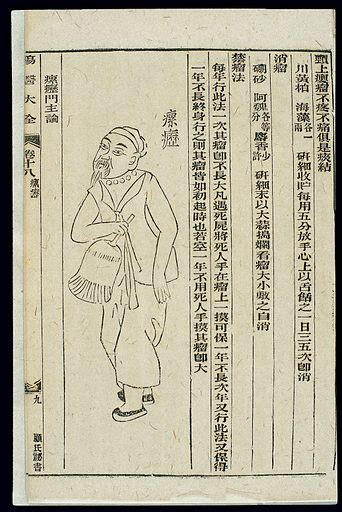 頸上癭瘤不疼不痛俱是痰結
川黃柏 海藻各一兩 研細收貯每用五分放手心上以舌餂之一日三五次卽消
消瘤
硼砂 阿魏各等分 麝香少許 研細末以大蒜搗爛看瘤大小敷之自消
禁瘤法
每年行此法一次其瘤卽不長大凡遇死屍將死人手在瘤上一摸可保一年不長次年又行此法又保得
一年不長終身行之則其瘤皆如初起時也若至一年不用死人手摸其瘤卽大
瘰癧
瘰癧門主論
瘍醫大全
卷十八
瘰癧
九
顧氏秘書